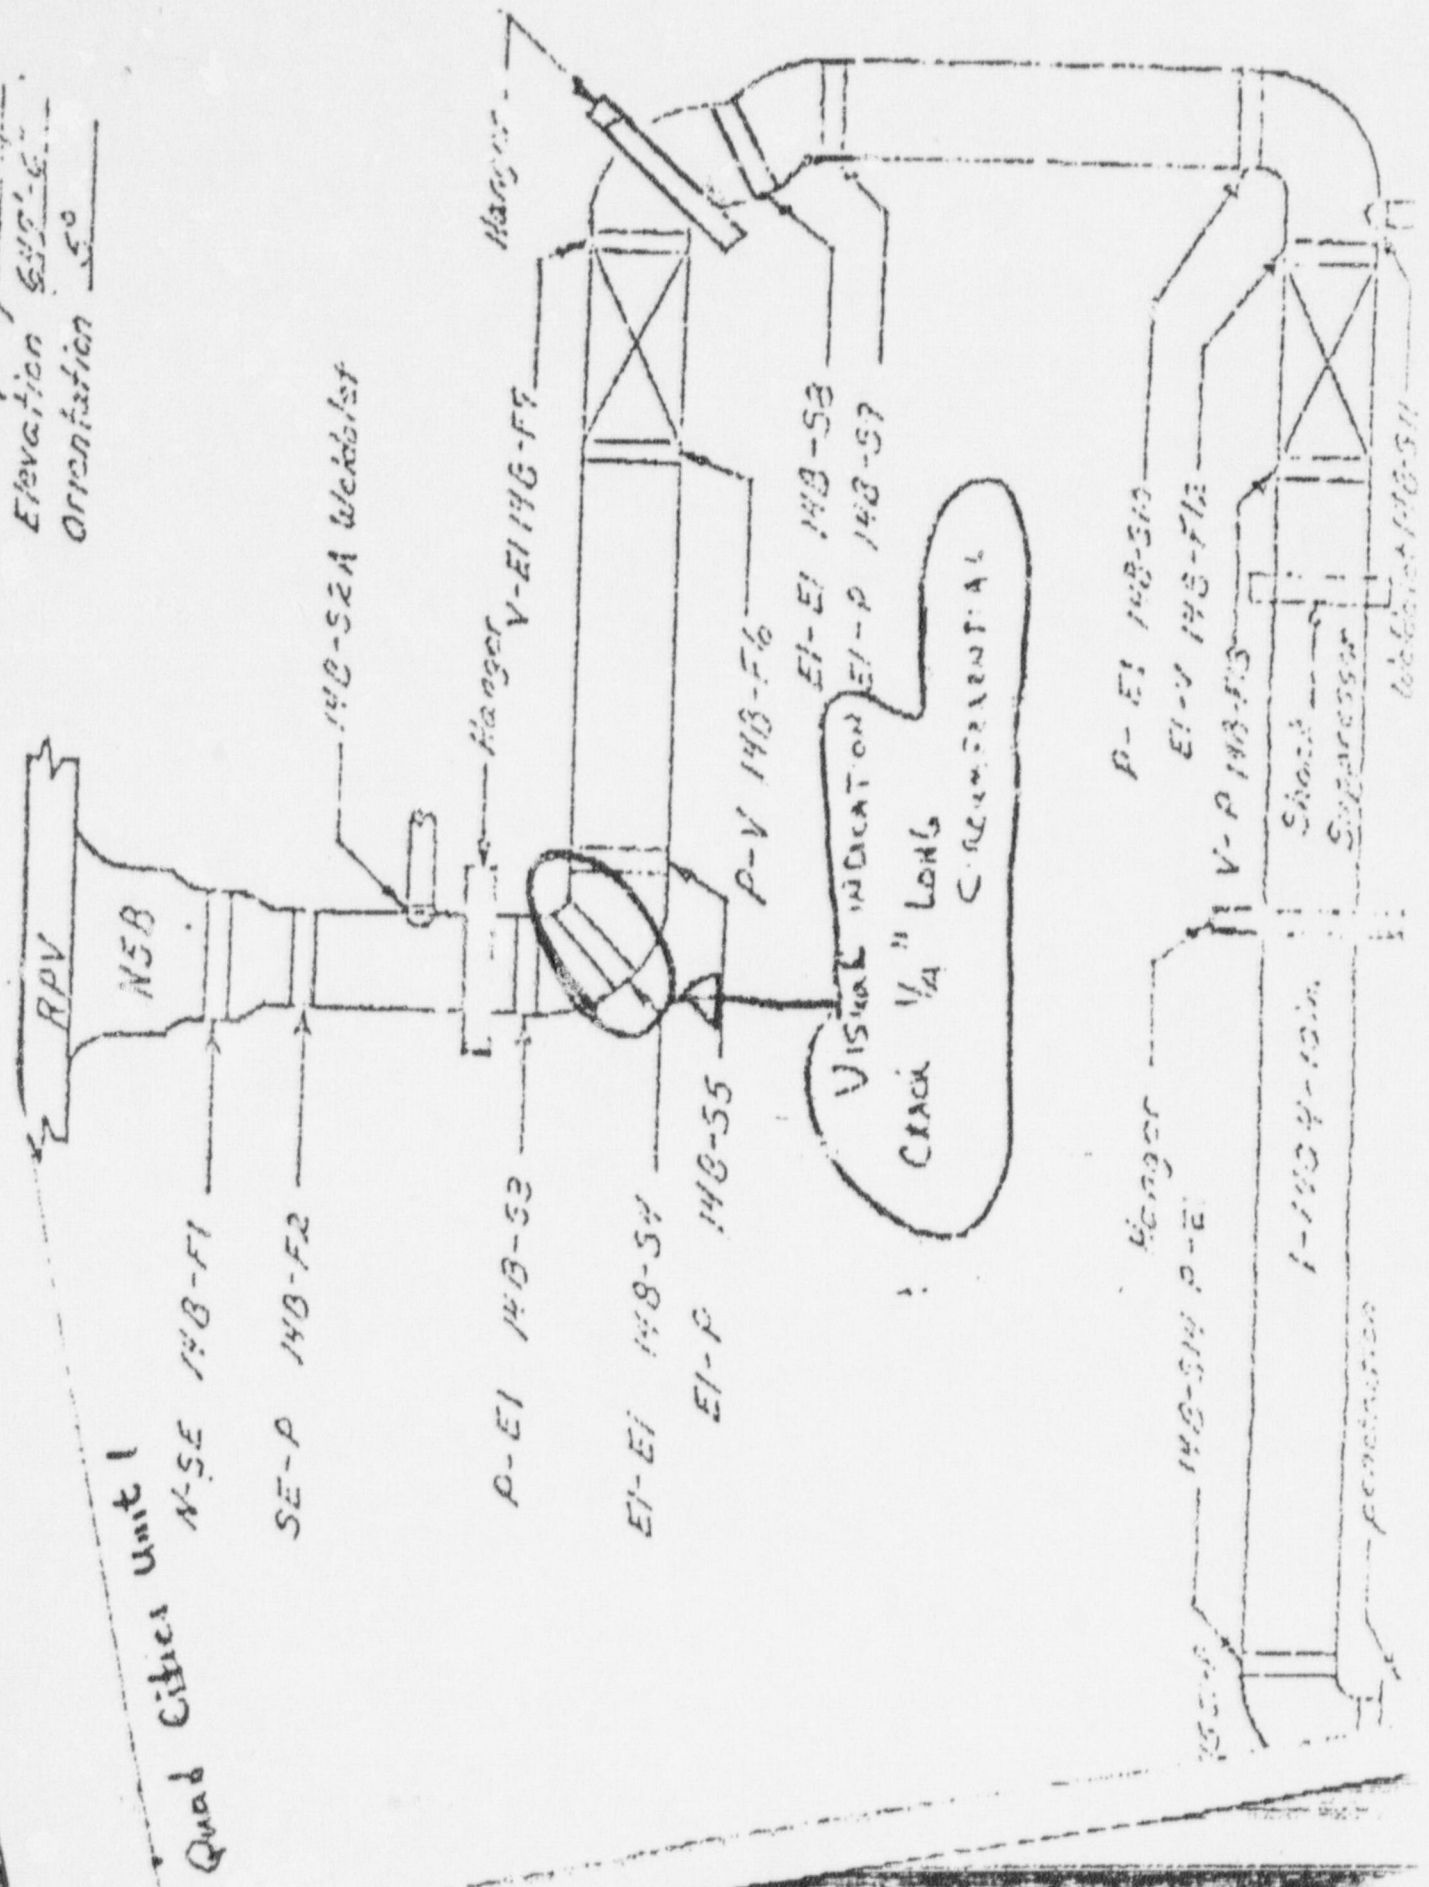 Quad Cities Unit 1
Elevation
Orientation 5°
RPV
N5B
N-SE 14B-F1
SE-P 14B-F2
14B-S2A Weldolet
Hanger
P-E1 14B-S3
E1-E1 14B-S4
E1-P 14B-S5
P-V 14B-F6
V-E1 14B-F7
Hanger
E1-E1 14B-S8
E1-P 14B-S9
VISUAL INDICATION
CRACK 1/4" LONG
CIRCUMFRENTIAL
P-E1 14B-S10
E1-V 14B-F12
V-P 14B-F13
Shock
Supressor
Weldolet 14B-S11
Hanger
14B-S14 P-E1
1-1404-10in.
penetration